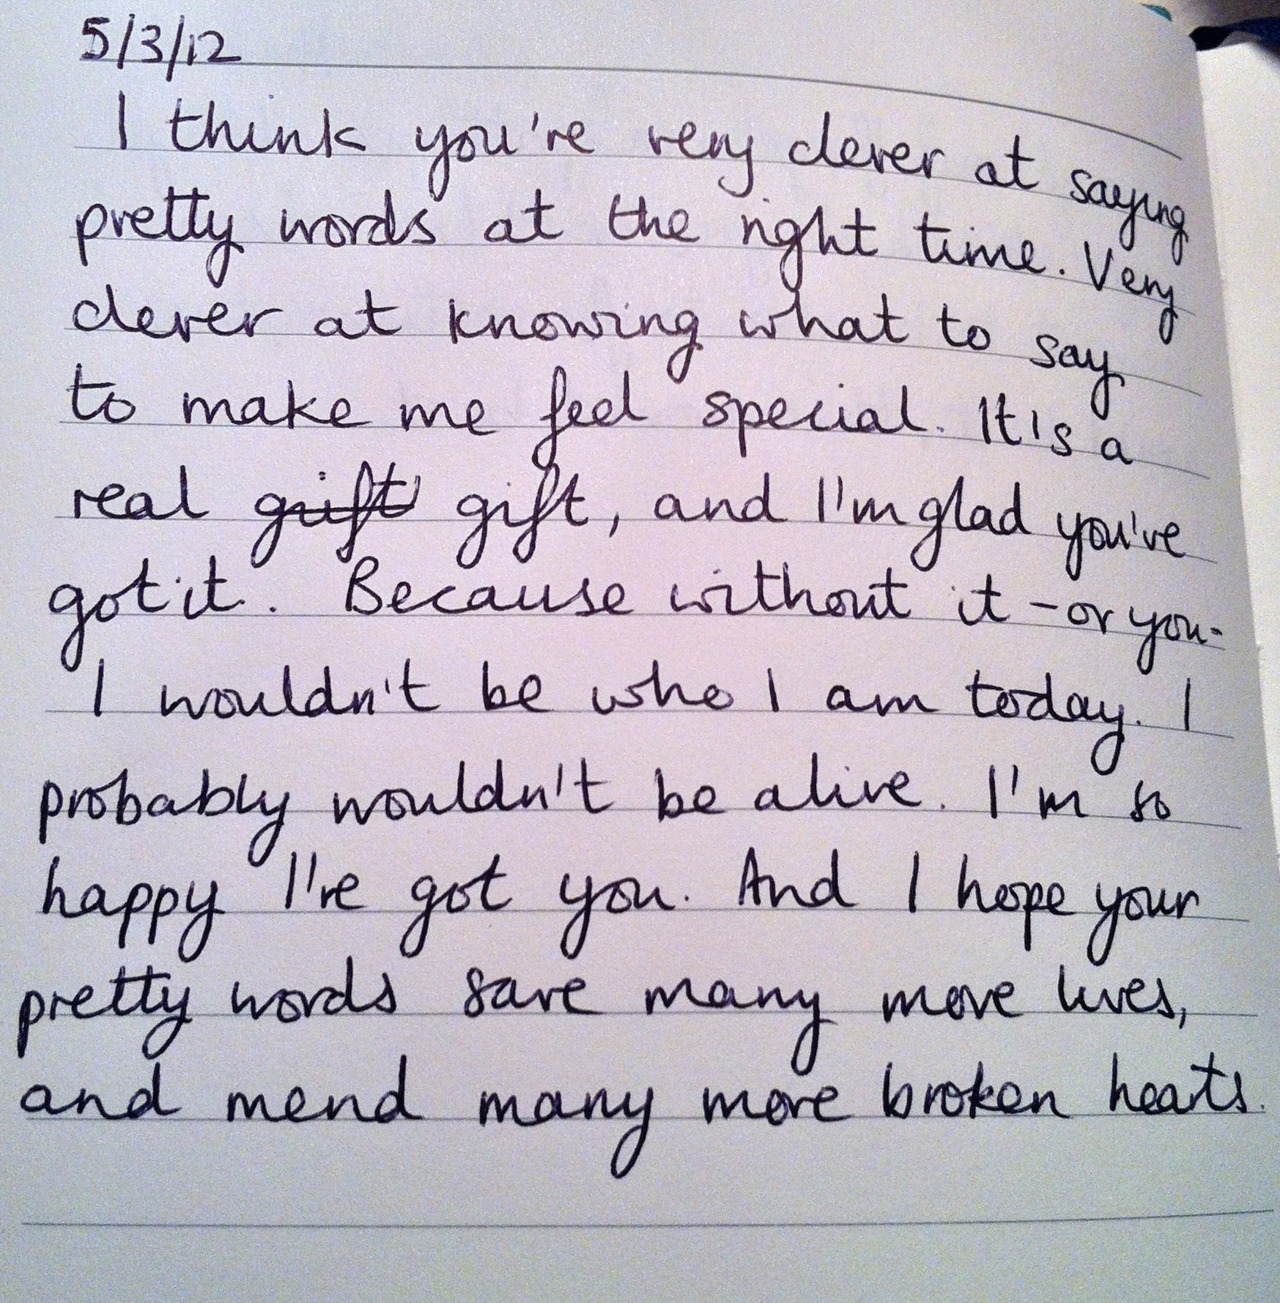 5/3/12
I think you're very clever at saying
pretty words at the right time. Very
clever at knowing what to say
to make me feel special. It's a
real grift gift, and I'm glad you've
got it. Because without it - or you -
I wouldn't be who I am today. I
probably wouldn't be alive. I'm so
happy I've got you. And I hope your
pretty words save many more lives,
and mend many more broken heats.